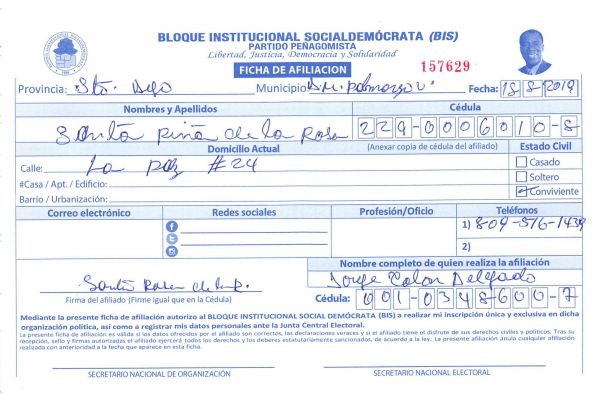 BLOQUE INSTITUCIONAL SOCIALDEMÓCRATA (BIS)
PARTIDO PEÑAGOMISTA
Libertad, Justicia, Democracia y Solidaridad
FICHA DE AFILIACION
157629
Provincia: Sto. Dgo
Municipio: D.M.
Fecha: 18-8-2019
Nombres y Apellidos
Cédula
Santa Piña de la Rosa
229-0006010-8
Domicilio Actual
(Anexar copia de cédula del afiliado)
Estado Civil
Calle: La paz #24
Casado
#Casa / Apt. / Edificio:
Soltero
Barrio / Urbanización:
Conviviente
Correo electrónico
Redes sociales
Profesión/Oficio
Teléfonos
1) 809-516-1439
2)
Nombre completo de quien realiza la afiliación
Jorge Colon Delgado
Firma del afiliado (Firme igual que en la Cédula)
Cédula: 001-0348600-7
Mediante la presente ficha de afiliación autorizo al BLOQUE INSTITUCIONAL SOCIAL DEMÓCRATA (BIS) a realizar mi inscripción única y exclusiva en dicha
organización política, así como a registrar mis datos personales ante la Junta Central Electoral.
La presente ficha de afiliación es válida si los datos ofrecidos por el afiliado son correctos, las declaraciones veraces y si el afiliado tiene el disfrute de sus derechos civiles y políticos. Tras su
recepción, sello y firmas autorizadas el afiliado ejercerá todos los derechos y los deberes estatutariamente sancionados, de acuerdo a la ley. La presente afiliación anula cualquier afiliación
realizada con anterioridad a la fecha que aparece en esta ficha.
SECRETARIO NACIONAL DE ORGANIZACIÓN
SECRETARIO NACIONAL ELECTORAL